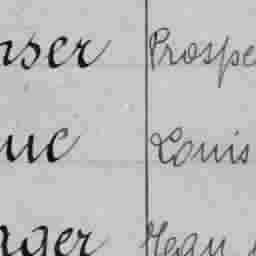 nser Prospe
uc Louis
ager Jean